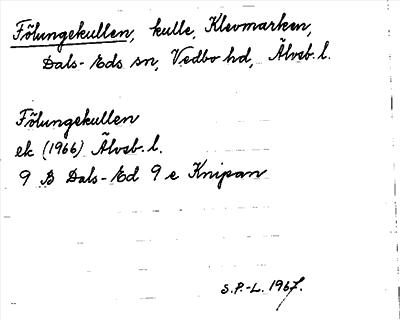 Fölungekullen, kulle, Klevmarken,
Dals-Eds sn, Vedbo hd, Älvsb. l.
Fölungekullen
ek (1966) Älvsb. l.
9 B Dals-Ed 9 e Knipan
S.P.-L. 1967.